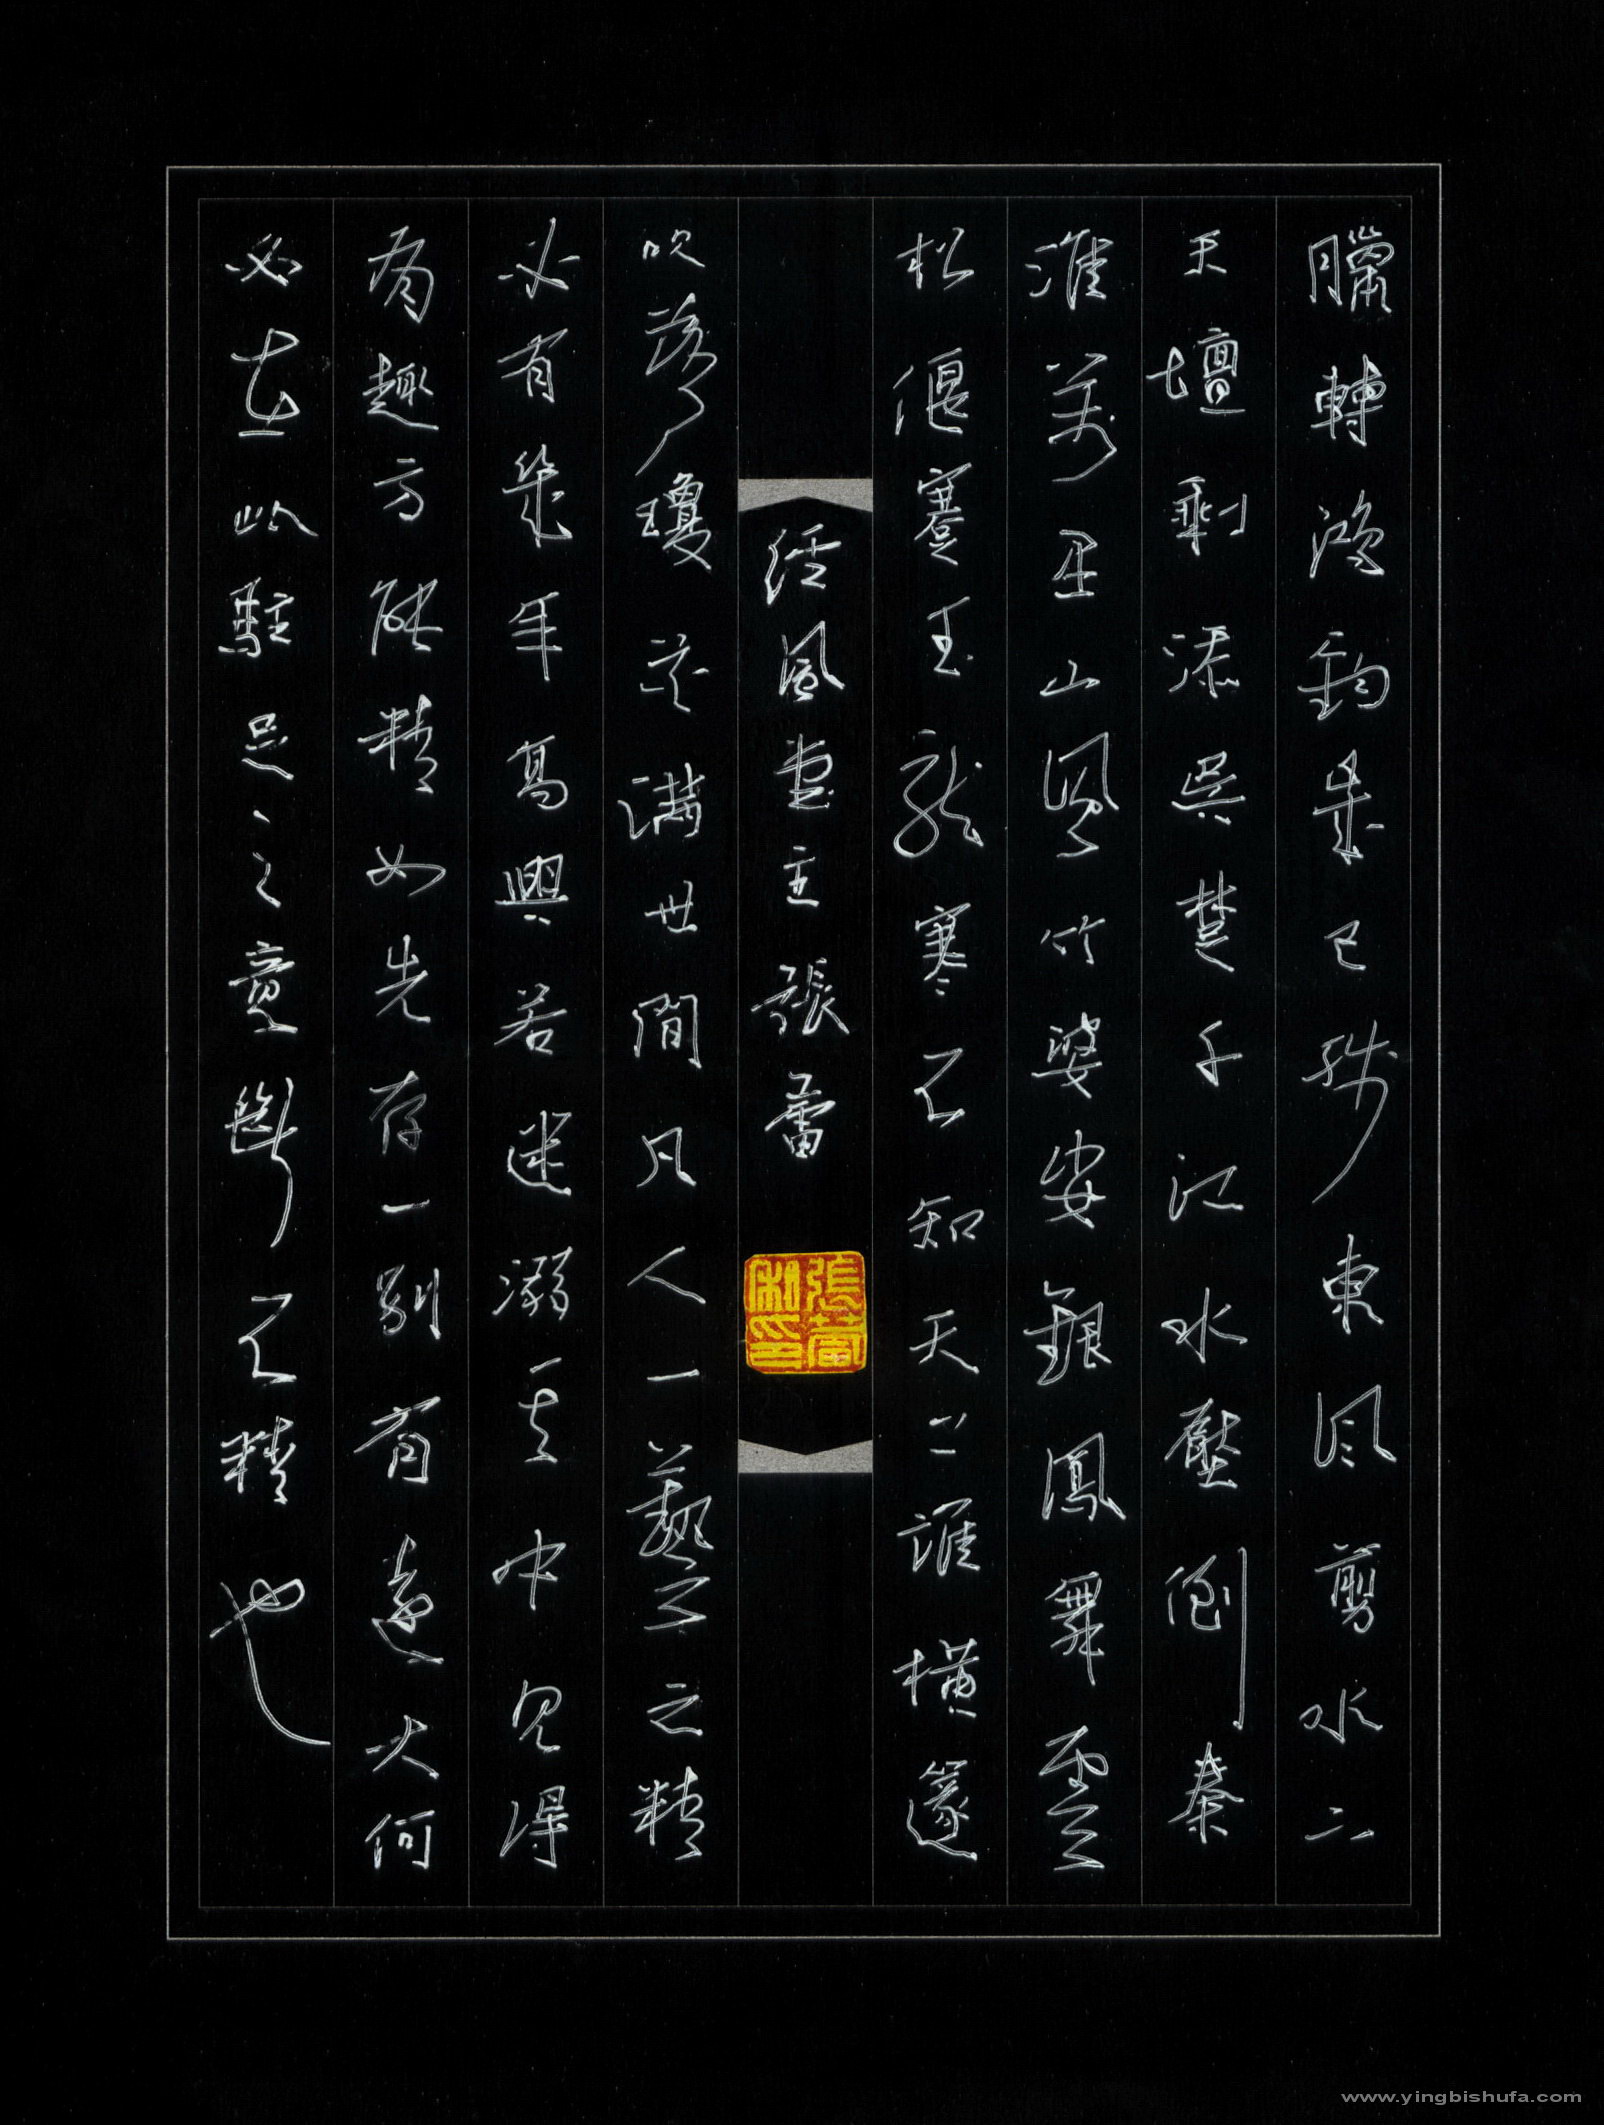 臘轉鴻鈞歲已殘東風剪水下
天壇剩添吳楚千江水壓倒秦
淮萬里山風竹婆娑銀鳳舞雲
松偃蹇玉龍寒不知天上誰橫篴
風堂主張蕾
張蕾私印
吹落瓊花滿世間凡人一藝之精
必有幾年高興若迷溺其中見得
有趣方能精如先存一別有遠大何
必在此駐足之意斷不精也
www.yingbishufa.com